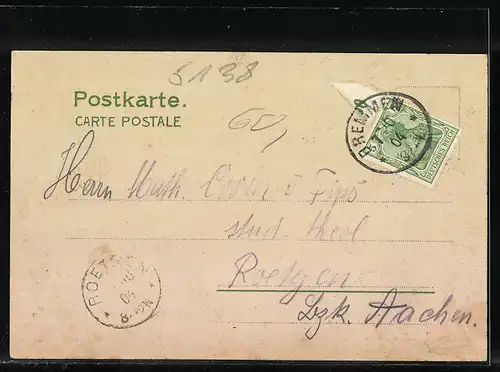 5138
Postkarte.
CARTE POSTALE
DREMMEN
04
DEUTSCHES REICH
Herrn Math.
stud. theol
Roetgen
Bzk. Aachen.
ROET
04